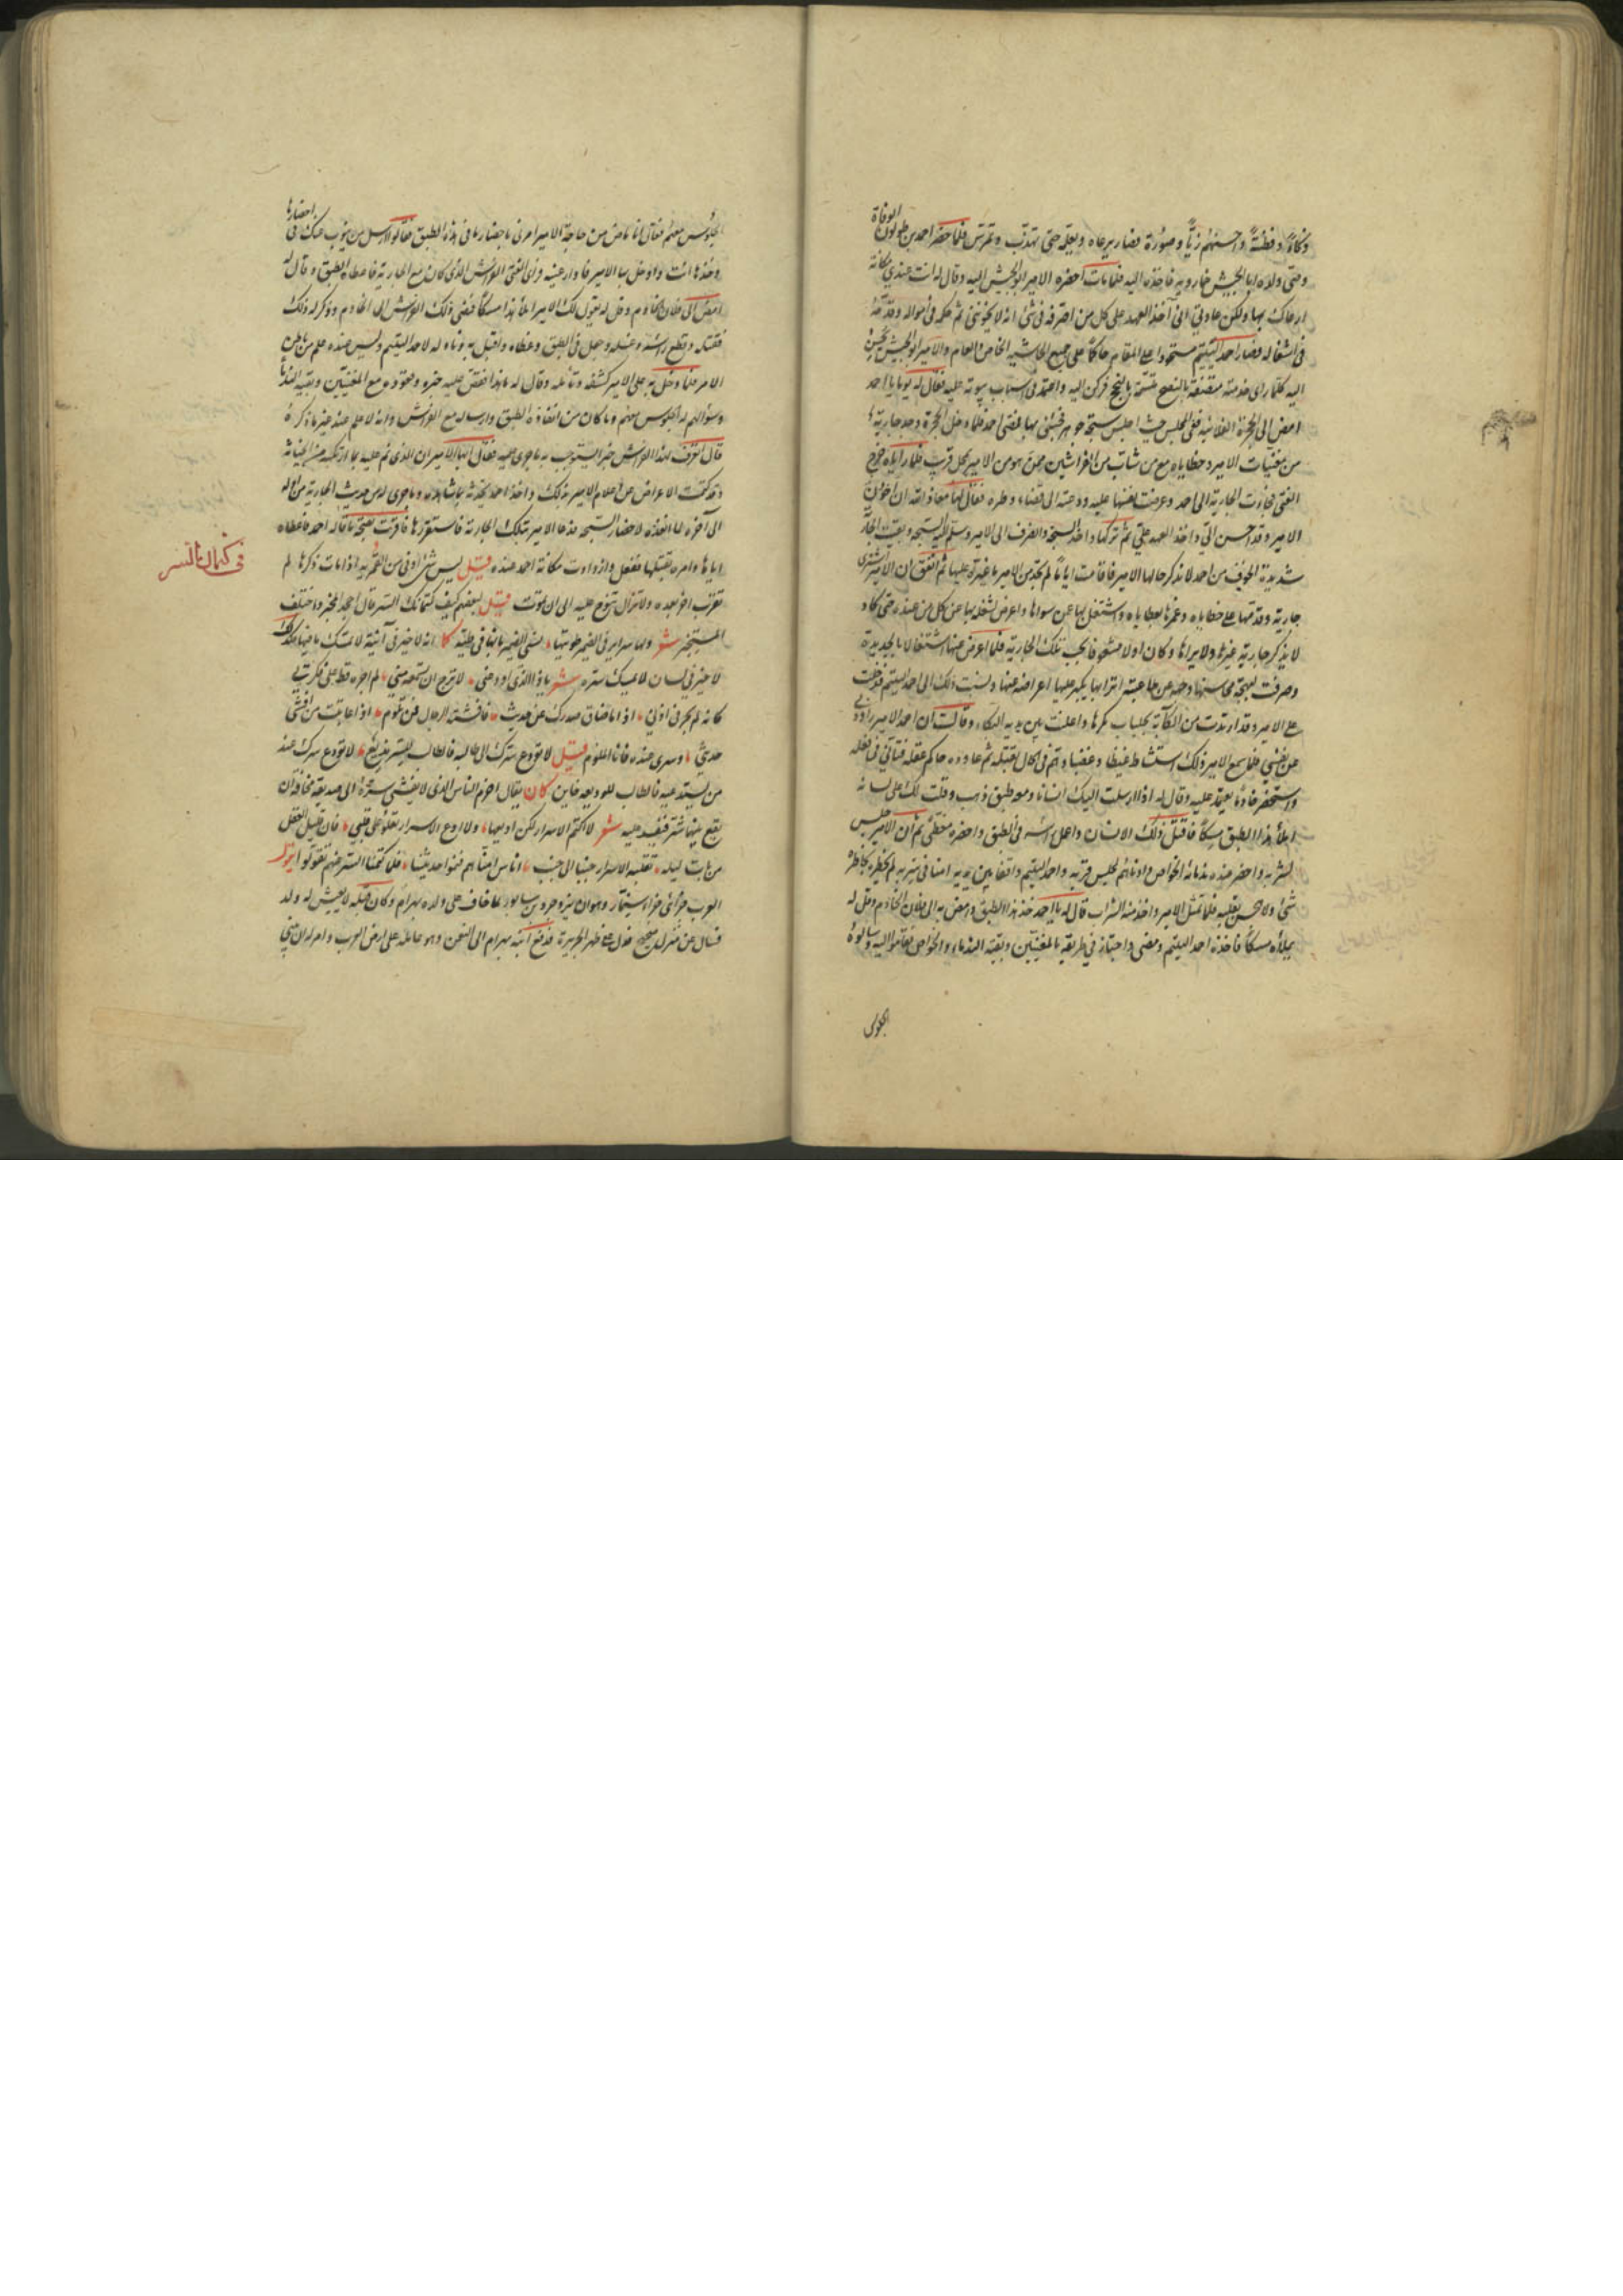 ذكاءً وفطنةً واحسنهم زيًّا وصورة فصار يرعاه ويعلمه حتى تهذب وتمرس فلما حضر احمد بن طولون الوفاة
وصى ولده ابا الجيش خمارويه فاخذه اليه فلما مات احضره الامير ابو الجيش اليه وقال له انت عندي بمكانة
ارعاك بها ولكن عادتي اني آخذ العهد على كل من اصرفه في شئ انه لا يخونني ثم حكمه في امواله وقدمه
في اشغاله فصار احمد اليتيم مستحوذا على المقام حاكما على جميع الحاشية الخاص والعام والامير ابو الجيش يحسن
اليه كلما راى خدمته متصفة بالنصح متسمة بالنجح فركن اليه واعتمد في اسباب بيوته عليه فقال له يوما يا احمد
امض الى الحجرة الفلانيه ففي المجلس حيث اجلس سبحة جوهر فجئني بها فمضى احمد فلما دخل الحجرة وجد جارية
من مغنيات الامير وحظاياه مع من شاب من الفراشين ممن هو من الامير بمحل قريب فلما راياه خرج
الفتى فجاءت الجارية الى احمد وعرضت نفسها عليه ودعته الى قضاء وطره فقال لها معاذ الله ان اخون
الامير وقد احسن الي واخذ العهد علي ثم تركها واخذ السبحة وانصرف الى الامير وسلم اليه السبحة وبقيت الجارية
شديدة الخوف من احمد لا يذكر حالها للامير فاقامت اياما لم تجد من الامير ما غيره عليها ثم اتفق ان الامير اشترى
جارية وقدمها على حظاياه وغمرها بعطاياه واشتغل بها عمن سواها واعرض لشغله بها عن كل من عنده حتى كاد
لا يذكر جارية غيرها ولا يراها وكان اولا مشغوفا بحب تلك الجارية فلما اعرض عنها اشتغالا بالجديدة
وصرفت لبهجة محاسنها وجهه عن ملاعبة اترابها كبر عليها اعراضه عنها ونسبت ذلك الى احمد اليتيم فدخلت
على الامير وقد ارتدت من الكآبة بجلباب مكرها واعلنت بين يديه البكاء وقالت ان احمد اليتيم راودني
عن نفسي فلما سمع الامير ذلك استشاط غيظا وغضبا وهم في الحال بقتله ثم عاوده حاكم عقله فتأنى في فعله
واستحضر خادما يعتمد عليه وقال له اذا ارسلت اليك انسانا ومعه طبق ذهب وقلت لك على لسانه
املأ هذا الطبق مسكا فاقتل ذلك الانسان واجعل راسه في الطبق واحضره مغطى ثم ان الامير جلس
لشربه واحضر عنده ندمائه الخواص وادناهم لمجلس قربه واحمد اليتيم واقفا بين يديه امنا في سربه لم يخطر بخاطره
شئ ولا هجس بقلبه فلما تمثل الامير واخذ منه الشراب قال له يا احمد خذ هذا الطبق وامض به الى فلان الخادم وقل له
يملأه مسكا فاخذه احمد اليتيم ومضى واجتاز في طريقه بالمغنيين وبقية الندماء والخواص فقاموا اليه وسالوه
الجلوس
الجلوس معهم فقال انا ماض في حاجة الامير امرني باحضارها في هذا الطبق فقالوا ارسل من ينوب عنك في احضارها
وخذها انت وادخل بها الامير فادار عينيه وراى الفتى الفراش الذي كان مع الجارية فاعطاه الطبق وقال له
امض الى فلان الخادم وقل له يقول لك الامير املأ هذا مسكا فمضى ذلك الفراش الى الخادم وذكر له ذلك
فقتله وقطع راسه وغسله وجعل في الطبق وغطاه واقبل به وناوله لاحمد اليتيم وليس عنده علم من باطن
الامر فلما دخل به على الامير كشفه وتأمله وقال له ما هذا فقص عليه خبره وقعوده مع المغنيين وبقية الندما
وسؤالهم له الجلوس معهم وما كان من انفاذه الطبق وارساله مع الفراش وانه لا علم عنده غير ما ذكره
قال اتعرف لهذا الفراش خبرا يستوجب به ما جرى عليه فقال ايها الامير ان الذي تم عليه بما ارتكبه من الخيانة
وقد كتمت الاعراض عن اعلام الامير بذلك واخذ احمد يحدثه بما شاهده وما جرى له من حديث الجارية من اوله
الى آخره لما انفذه لاحضار السبحة فدعا الامير بتلك الجارية فاستقررها فاقرت بصحة ما قاله احمد فاعطاه
اياها وامره بقتلها ففعل وازدادت مكانة احمد عنده قيل ليس شئ اوفى من القمرية اذا مات ذكرها لم
تقرب اخر بعده ولا تزال تنوح عليه الى ان تموت قيل لبعضهم كيف كتمانك السر قال اجحد المخبر واحلف
في كتمان السر
للمستخبر شعر
لا خير في لسان لا يمسك ستره شعر
كانه لم يجر في اذني اذا ما ضاق صدرك عن حديث فافشته الرجال فمن تلوم اذا عاتبت من افشى
حديثي وسري عنده فانا الملوم قيل لا تودع سرك الى طالبه فالطالب للسر مذيع لا تودع سرك عند
من يستدعيه فالطالب للوديعة خاين كان يقال احزم الناس الذي لا يفشي سره الى صديقه مخافة ان
يقع بينهما شر فيفسد عليه شعر لا اكتم الاسرار لكن اذيعها ولا ادع الاسرار تغلو على قلبي فان قليل العقل
من بات ليله تقلبه الاسرار جنبا الى جنب اناس امناهم فنموا حديثنا فلما كتمنا السر عنهم تقولوا يقول
العرب جزائي جزاء سنمار وهو ان يزدجرد بن سابور لما خاف على ولده بهرام وكان قبله لا يعيش له ولد
فسال عن منزل صحيح فدل على ظهر الجزيرة فدفع ابنه بهرام الى النعمن وهو عامله على ارض العرب وامره ان يبني